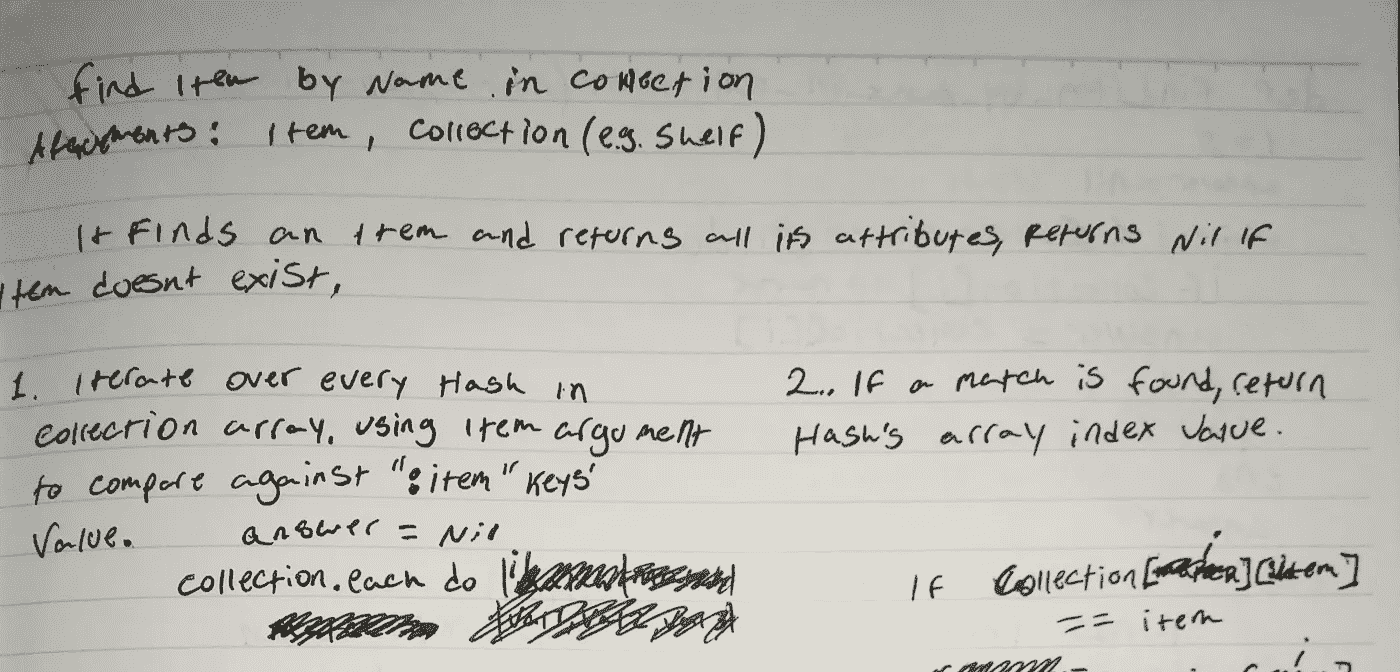 find Item by Name in Collection
Arguments: Item, Collection (e.g. Shelf)
It Finds an Item and returns all its attributes, Returns Nil IF
Item doesnt exist,
1. Iterate over every Hash in
collection array, using Item argument
to compare against ":item" Keys'
Value.
answer = Nil
collection.each do |i|
2.. If a match is found, return
Hash's array index value.
If Collection[i][:item]
== item